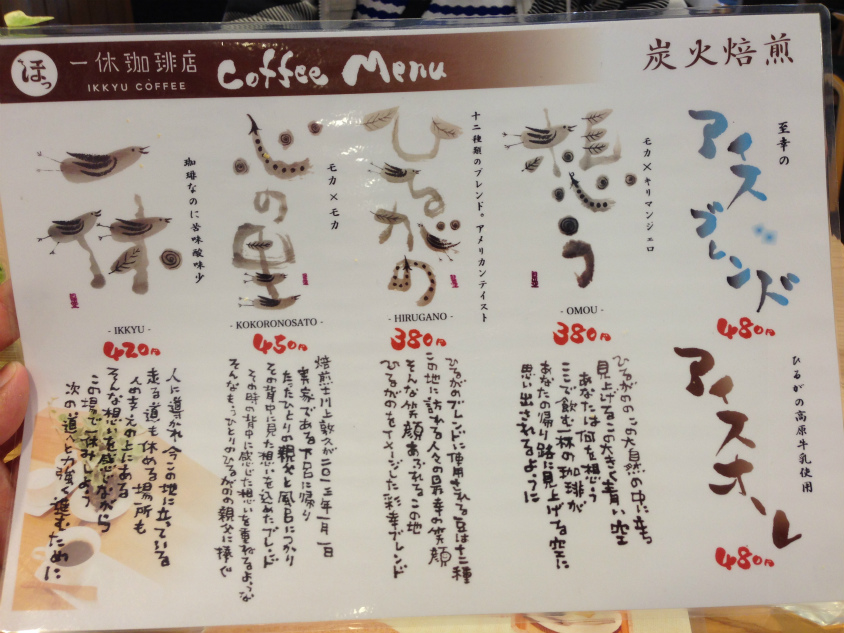 ほっ
一休珈琲店
IKKYU COFFEE
Coffee Menu
炭火焙煎
至幸の
アイスブレンド
480円
ひるがの高原牛乳使用
アイスオレ
480円
モカ×キリマンジェロ
想う
- OMOU -
380円
ひるがのの この大自然の中に立ち
見上げるこの大きく青い空
あなたは何を想う
ここで飲む一杯の珈琲が
あなたの帰り路に見上げる空に
思い出されるように
十二種類のブレンド。アメリカンテイスト
ひるがの
- HIRUGANO -
380円
ひるがのブレンドに使用される豆は十二種
この地に訪れる人々の最幸の笑顔
そんな笑顔あふれるこの地
ひるがのをイメージした彩幸ブレンド
モカ×モカ
心の里
- KOKORONOSATO -
450円
焙煎士川上敦久が二〇一三年一月一日
実家である下呂に帰り
たったひとりの親父と風呂につかり
その背中に見た想いを込めたブレンド
その時の背中に感じた想いを重ねるような
そんなもうひとりのひるがのの親父に捧ぐ
珈琲なのに苦味酸味少
一休
- IKKYU -
420円
人に導かれ 今この地に立っている
走る道も休める場所も
人の支えの上にある
そんな想いを感じながら
この場で一休みしよう
次の道へと力強く進むために